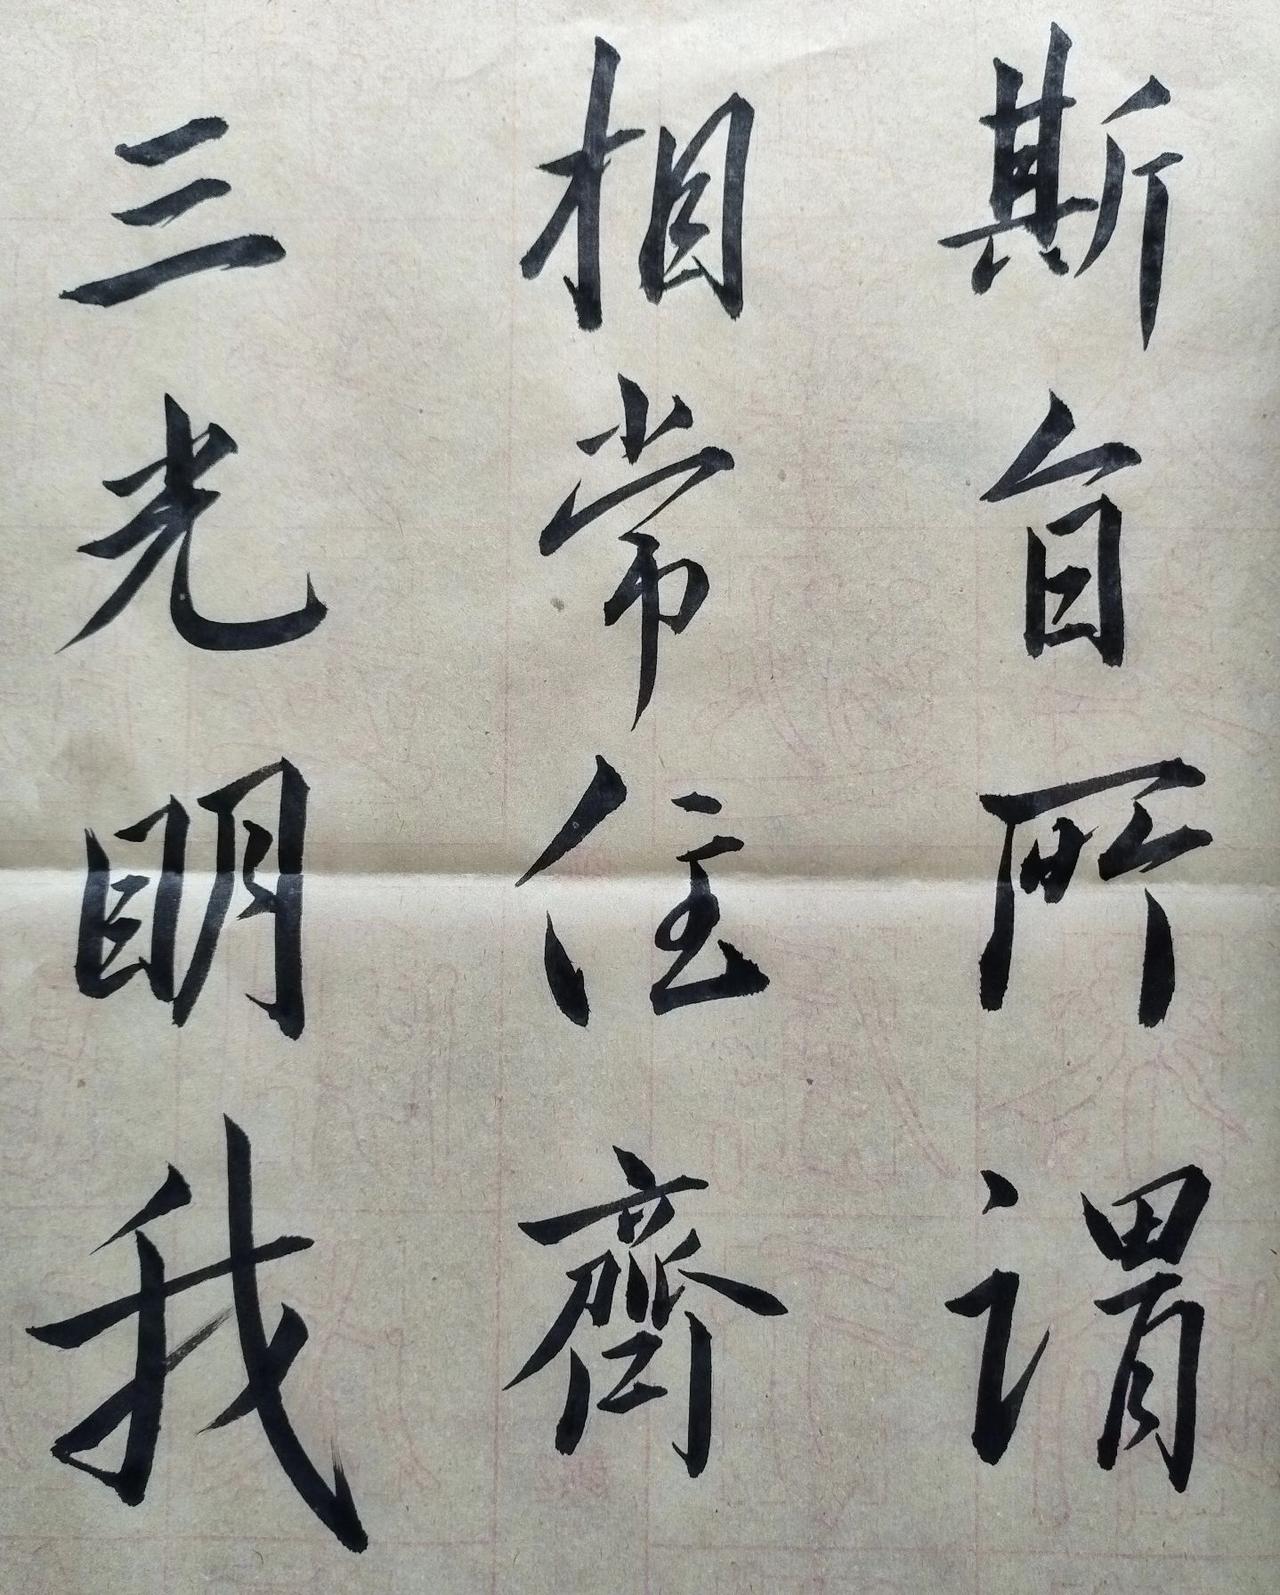 斯旨所謂
相常住齊
三光明我